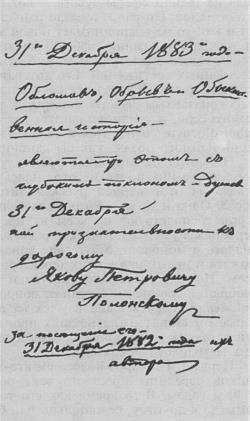 31го Декабря 1883го года —
Обломовъ, Обрывъ и Обыкно-
венная исторія —
являются при этомъ съ
глубокимъ поклономъ —
31го Декабря
признательности къ
дорогому
Якову Петровичу
Полонскому
за посѣщеніе его
31 Декабря 1882 года отъ
автора